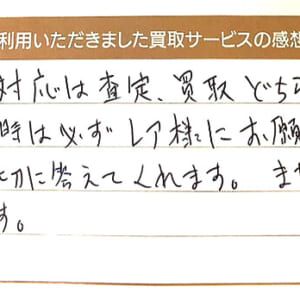 利用いただきました買取サービスの感想
対応は査定、買取 どちら
時は必ずレア様にお願
切に答えてくれます。ま
す。